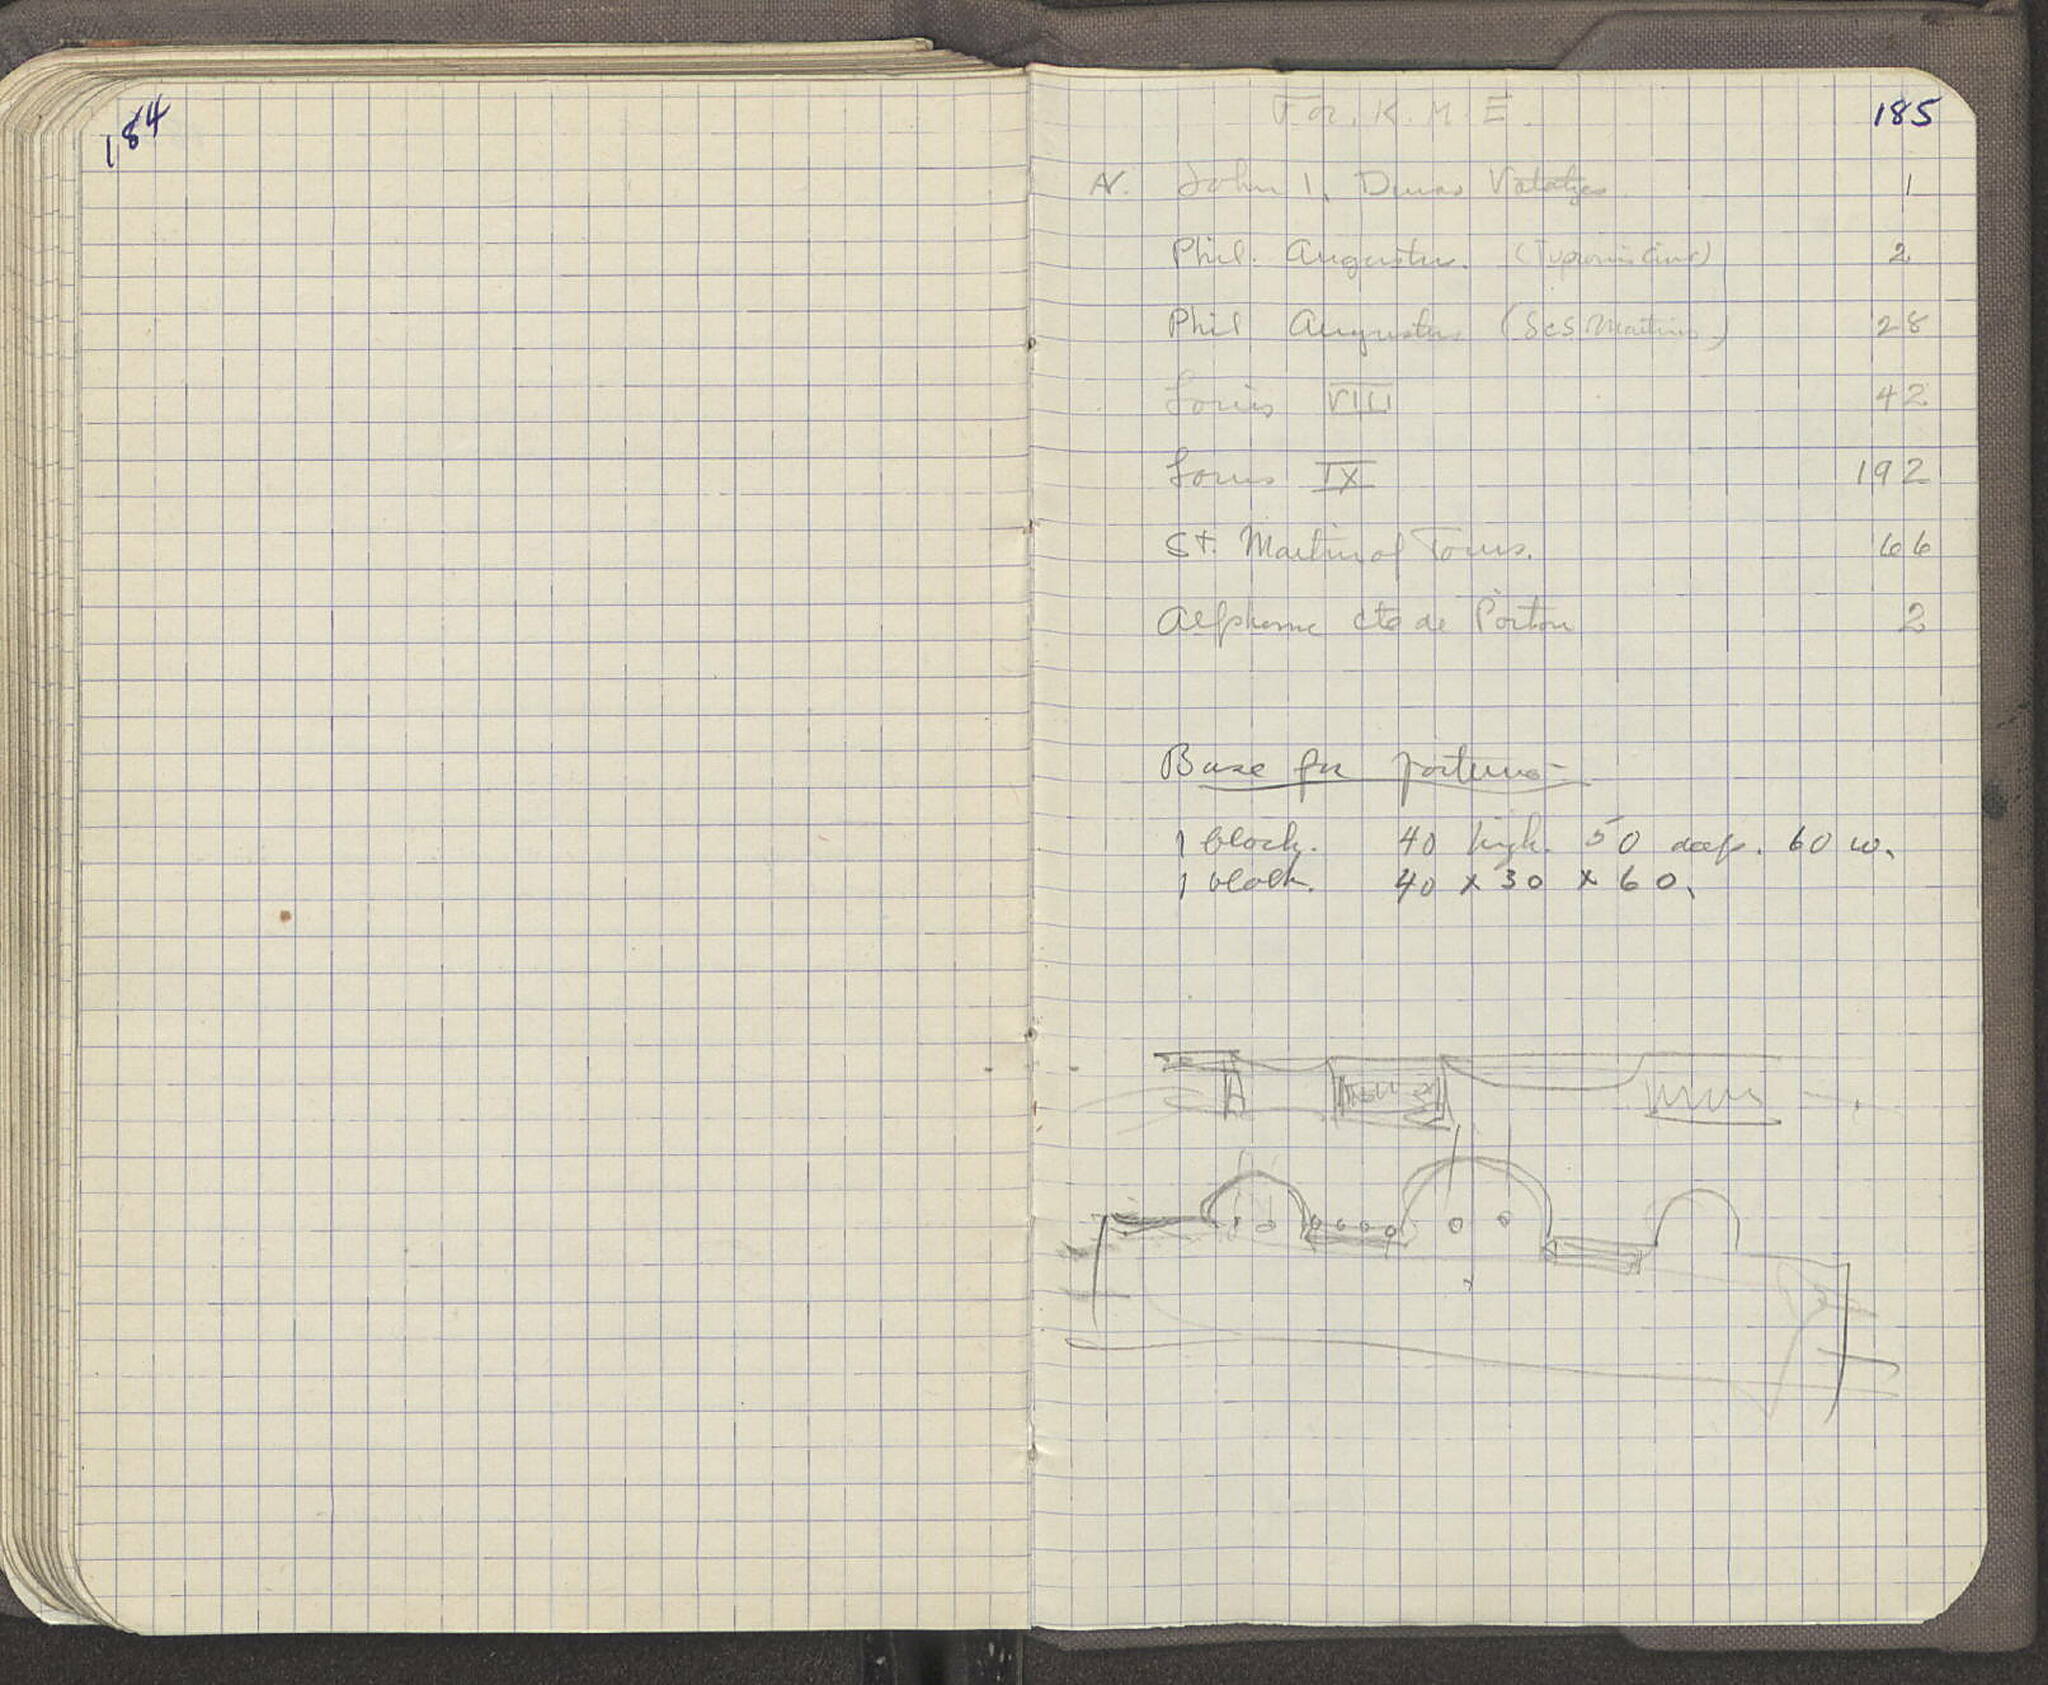 184
185
For. K. M. E.
N. John I, Ducas Vatatzes 1
Phil. Augustus. (Turonis Civis) 2
Phil Augustus (Scs Martinus) 28
Louis VIII 42
Louis IX 192
St. Martin of Tours. 66
Alphonse cte de Poitou 2
Base for
1 block. 40 high. 50 deep. 60 w.
1 block. 40 x 30 x 60.